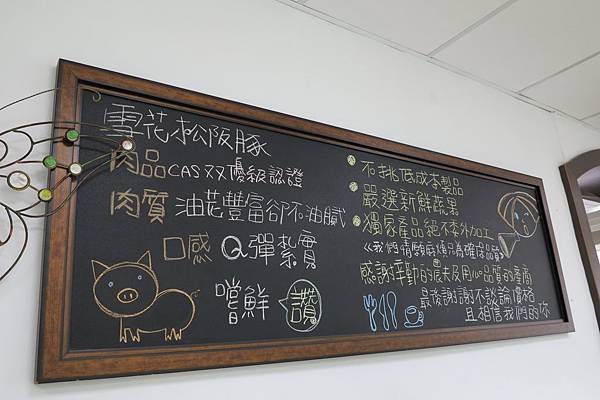 雪花松阪豚
肉品CAS雙優級認證
肉質 油花豐富卻不油膩
口感 Q彈紮實
嚐鮮 讚
不挑低成本製品
嚴選新鮮蔬果
獨家產品絕不委外加工
《我們情願麻煩只為確保品質》
感謝辛勤的農夫及用心品質的產商
最後謝謝不談論價格
且相信我們的你